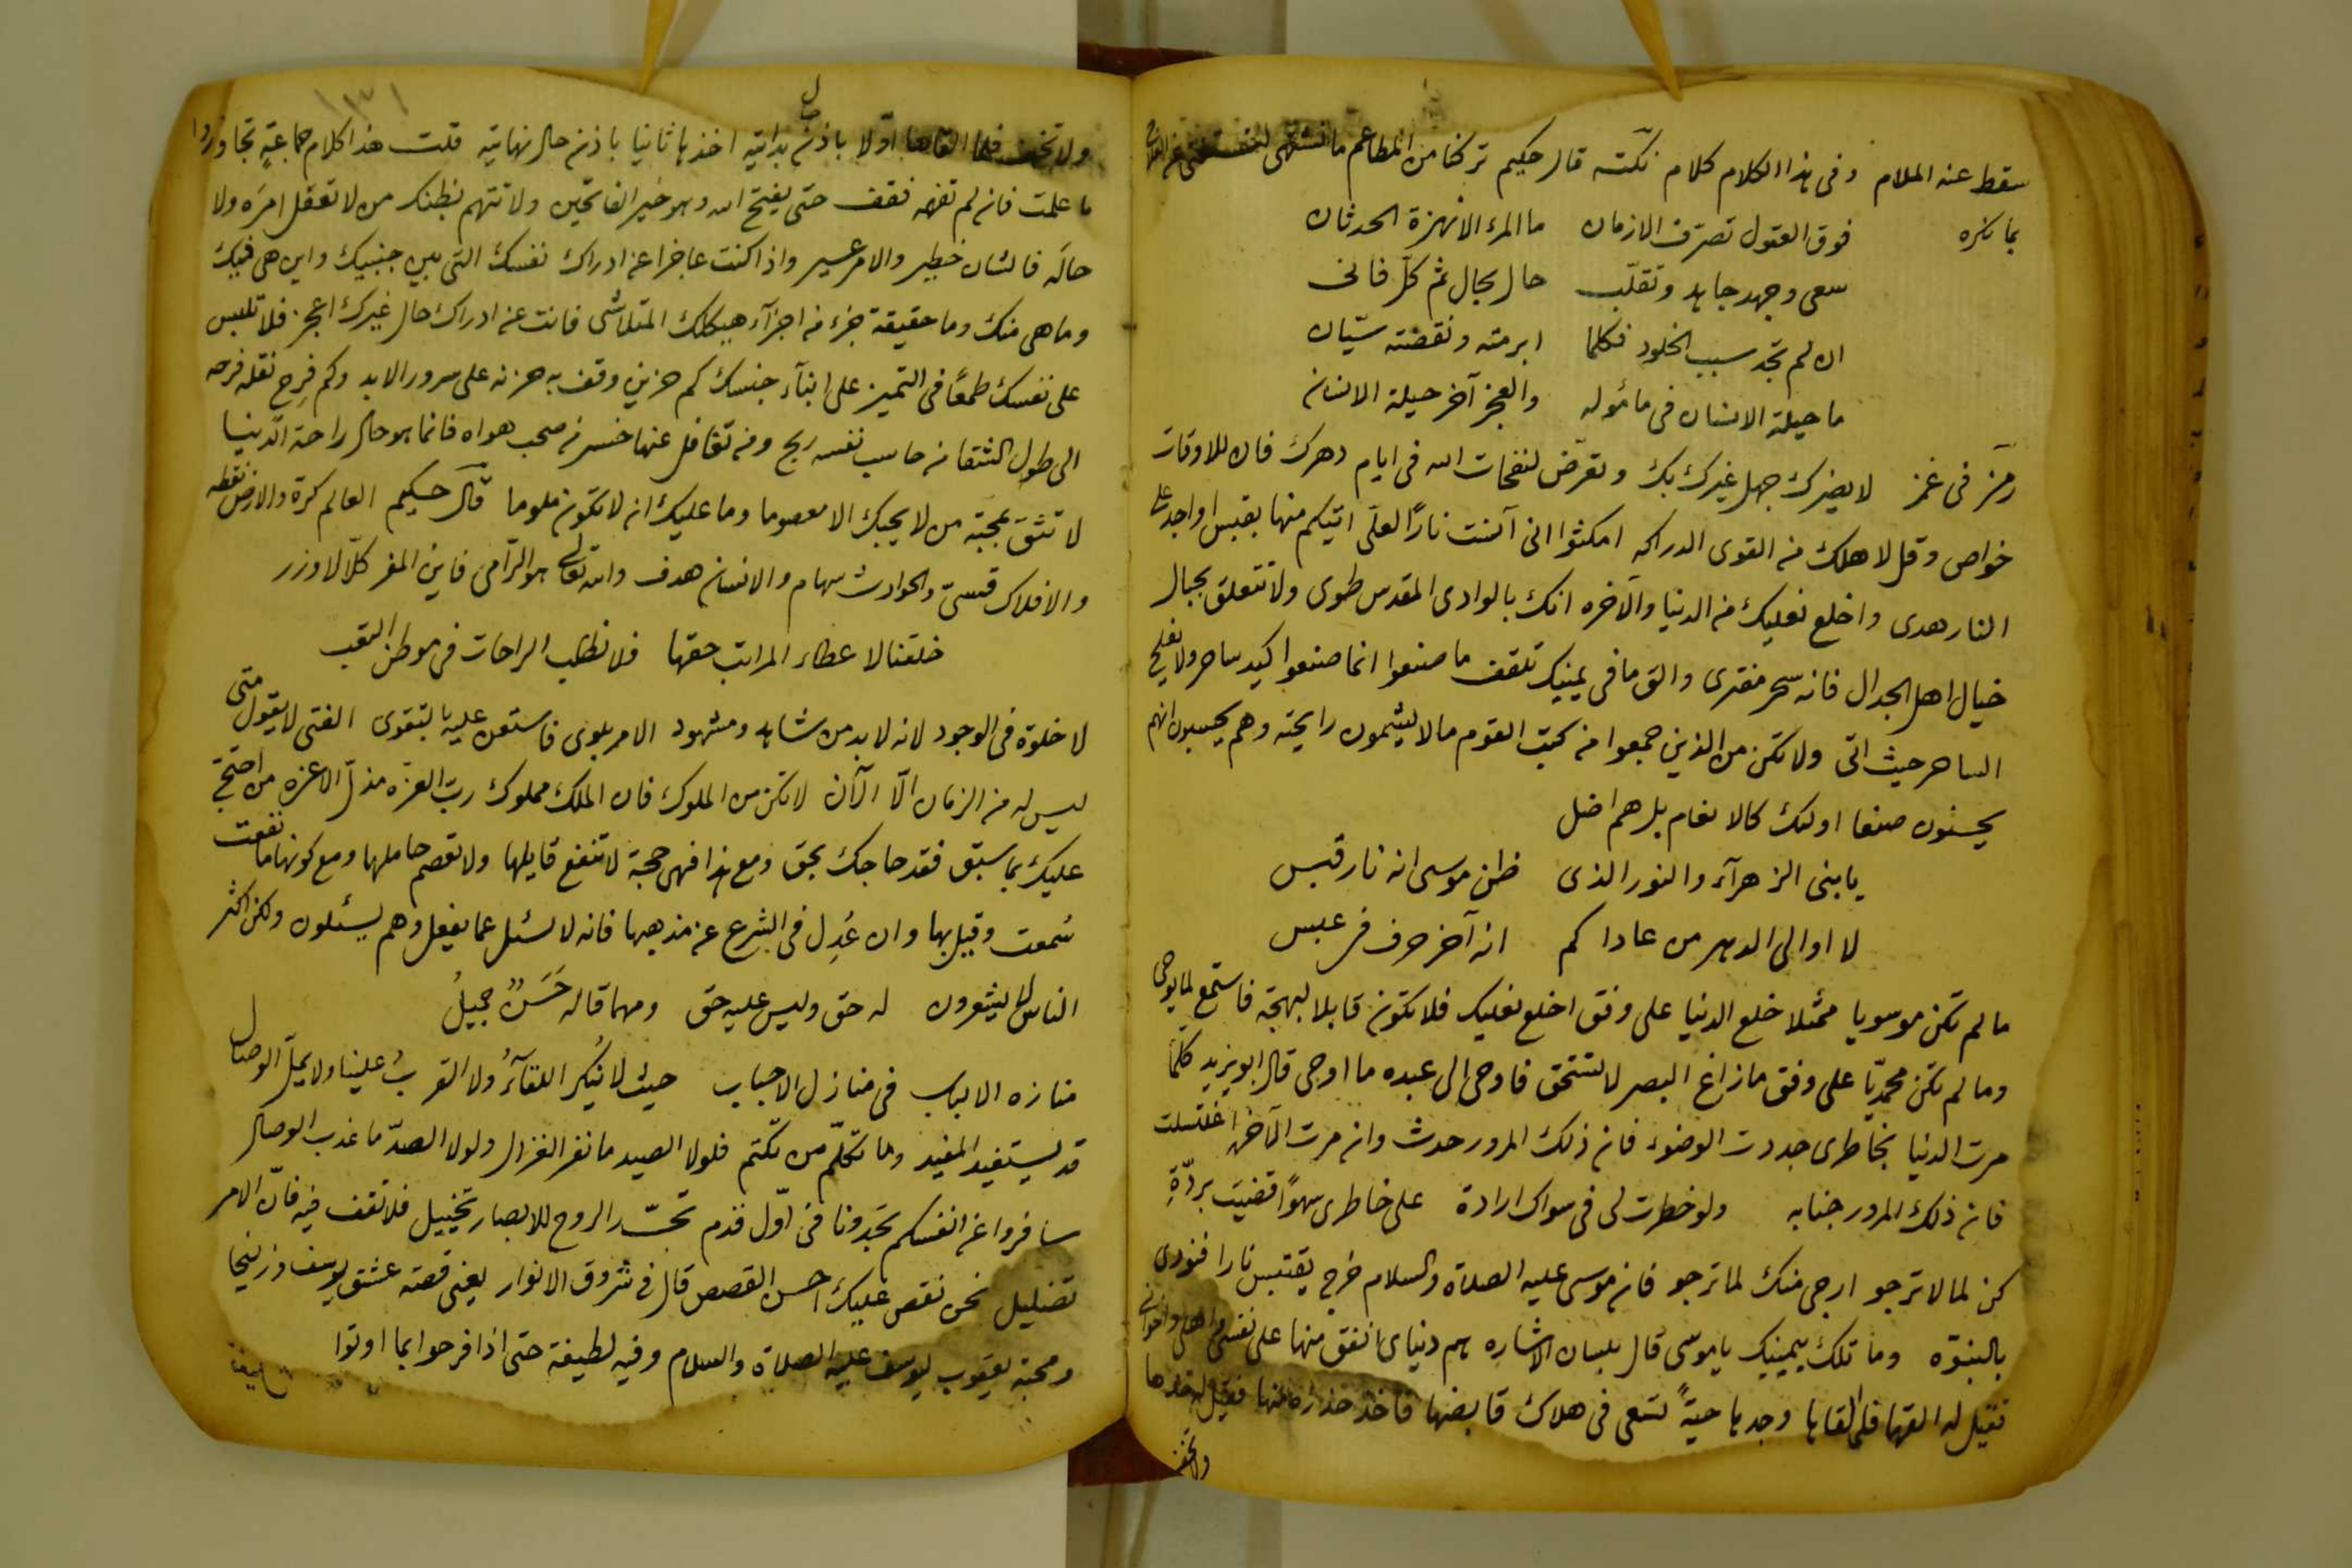 سقط عنه الملام وفى هذا الكلام كلام نكتة قال حكيم تركنا من المطاعم ما نشتهى
بما نكره فوق العقول تصرف الازمان ما المرء الا نهزة الحدثان
سعى وجهد جاهد وتقلّب حال يحال ثم كل فانى
ان لم تجد سبب الخلود فكلما ابرمته ونقضته سيّان
ما حيلة الانسان فى مأموله والعجز آخر حيلة الانسان
رمز فى غمز لا يضرك جهل غيرك بك وتعرض لنفحات الله فى ايام دهرك فان للاوقات
خواص وقل لاهلك من القوى الدراكه امكثوا انى آنست نارًا لعلى اتيكم منها بقبس او اجد على
النار هدى واخلع نعليك من الدنيا والآخره انك بالوادى المقدس طوى ولا تتعلق بحبال
خيال اهل الجدال فانه سحر مفترى والق ما فى يمينك تلقف ما صنعوا انما صنعوا كيد ساحر ولا يفلح
الساحر حيث اتى ولا تكن من الذين جمعوا من كتب القوم ما لا يشمون رايحته وهم يحسبون انهم
يحسنون صنعا اولئك كالانعام بل هم اضل
يا بنى الزهرآء والنور الذى ظن موسى انه نار قبس
لا اوالى الدهر من عاداكم انه آخر حرف فى عبس
ما لم تكن موسويا ممثلا خلع الدنيا على وفق اخلع نعليك فلا تكون قابلا لبهجة فاستمع لما يوحى
وما لم تكن محمديّا على وفق ما زاغ البصر لا تستحق فاوحى الى عبده ما اوحى قال ابو يزيد كلما
مرت الدنيا بخاطرى جددت الوضوء فان ذلك المرور حدث وان مرت الآخرة اغتسلت
فان ذلك المرور جنابه ولو خطرت لى فى سواك ارادة على خاطرى سهوًا قضيت بردّتى
كن لما لا ترجو ارجى منك لما ترجو فان موسى عليه الصلاة والسلام خرج يقتبس نارا فنودى
بالنبوّه وما تلك بيمينك يا موسى قال بلسان الاشاره هى دنياى انفق منها على نفسى واهلى واخوانى
فقيل له القها فلما القاها وجدها حيةً تسعى فى هلاك قابضها فاخذ حذاره منها فقيل له خذها
ولا تخف
ولا تخف فلما القاها اوّلا باذن بدايته اخذها ثانيا باذن حال نهايته قلت هذا كلام جماعة تجاوزوا
ما علمت فان لم تفهم فقف حتى يفتح الله وهو خير الفاتحين ولا تتهم بظنك من لا تعقل امره ولا
حاله فالشان خطير والامر عسير واذا كنت عاجزا عن ادراك نفسك التى بين جنبيك واين هى فيك
وما هى منك وما حقيقة جزء من اجزآء هيكلك المتلاشى فانت عن ادراك حال غيرك اعجز فلا تلبس
على نفسك طمعًا فى التميز على ابنآء جنسك كم حزين وقف به حزنه على سرور الابد وكم فرح نقله فرحه
الى طول الشقا من حاسب نفسه ربح ومن تغافل عنها خسر من صحب هواه فانما هو حال راحة الدنيا
لا تثق بمحبة من لا يحبك الا معصوما وما عليك ان لا تكون ملوما قال حكيم العالم كرة والارض نقطه
والافلاك قسىّ والحوادث سهام والانسان هدف والله تعالى هو الرّامى فاين المفر كلّا لا وزر
خلقنا لاعطاء المراتب حقها فلا تطلب الراحات فى موطن التعب
لا خلوة فى الوجود لانه لا بد من شاهد ومشهود الامر بلوى فاستعن عليه بالتقوى الفتى لا يقول متى
ليس له من الزمان الّا الآن لا تكن من الملوك فان الملك مملوك رب العزه مذلّ الاعزه من احتجّ
عليك بما سبق فقد حاجك بحق ومع هذا فهى حجة لا تنفع قايلها ولا تعصم حاملها ومع كونها ما نفعت
سُمعت وقيل بها وان عُدِل فى الشرع عن مذهبها فانه لا يسئل عما يفعل وهم يسئلون ولكن اكثر
الناس لا يشعرون له حق وليس عليه حق ومهما قال حَسَنٌ جميلُ
منازه الالباب فى منازل الاحباب حيث لا نُنكر اللقآءُ ولا القربُ علينا ولا يملّ الوصال
قد يستفيد المفيد وما تكلّم من تكتم فلولا الصيد ما نفر الغزال ولولا الصدّ ما عذب الوصال
سافروا عن انفسكم تجدونا فى اوّل قدم تحسّر الروح للابصار تخييل فلا تقف فيه فانّ الامر
تضليل نحن نقص عليك احسن القصص قال فى شروق الانوار يعنى قصة عشق يوسف وزليخا
ومحبة يعقوب ليوسف عليه الصلاة والسلام وفيه لطيفة حتى اذا فرحوا بما اوتوا